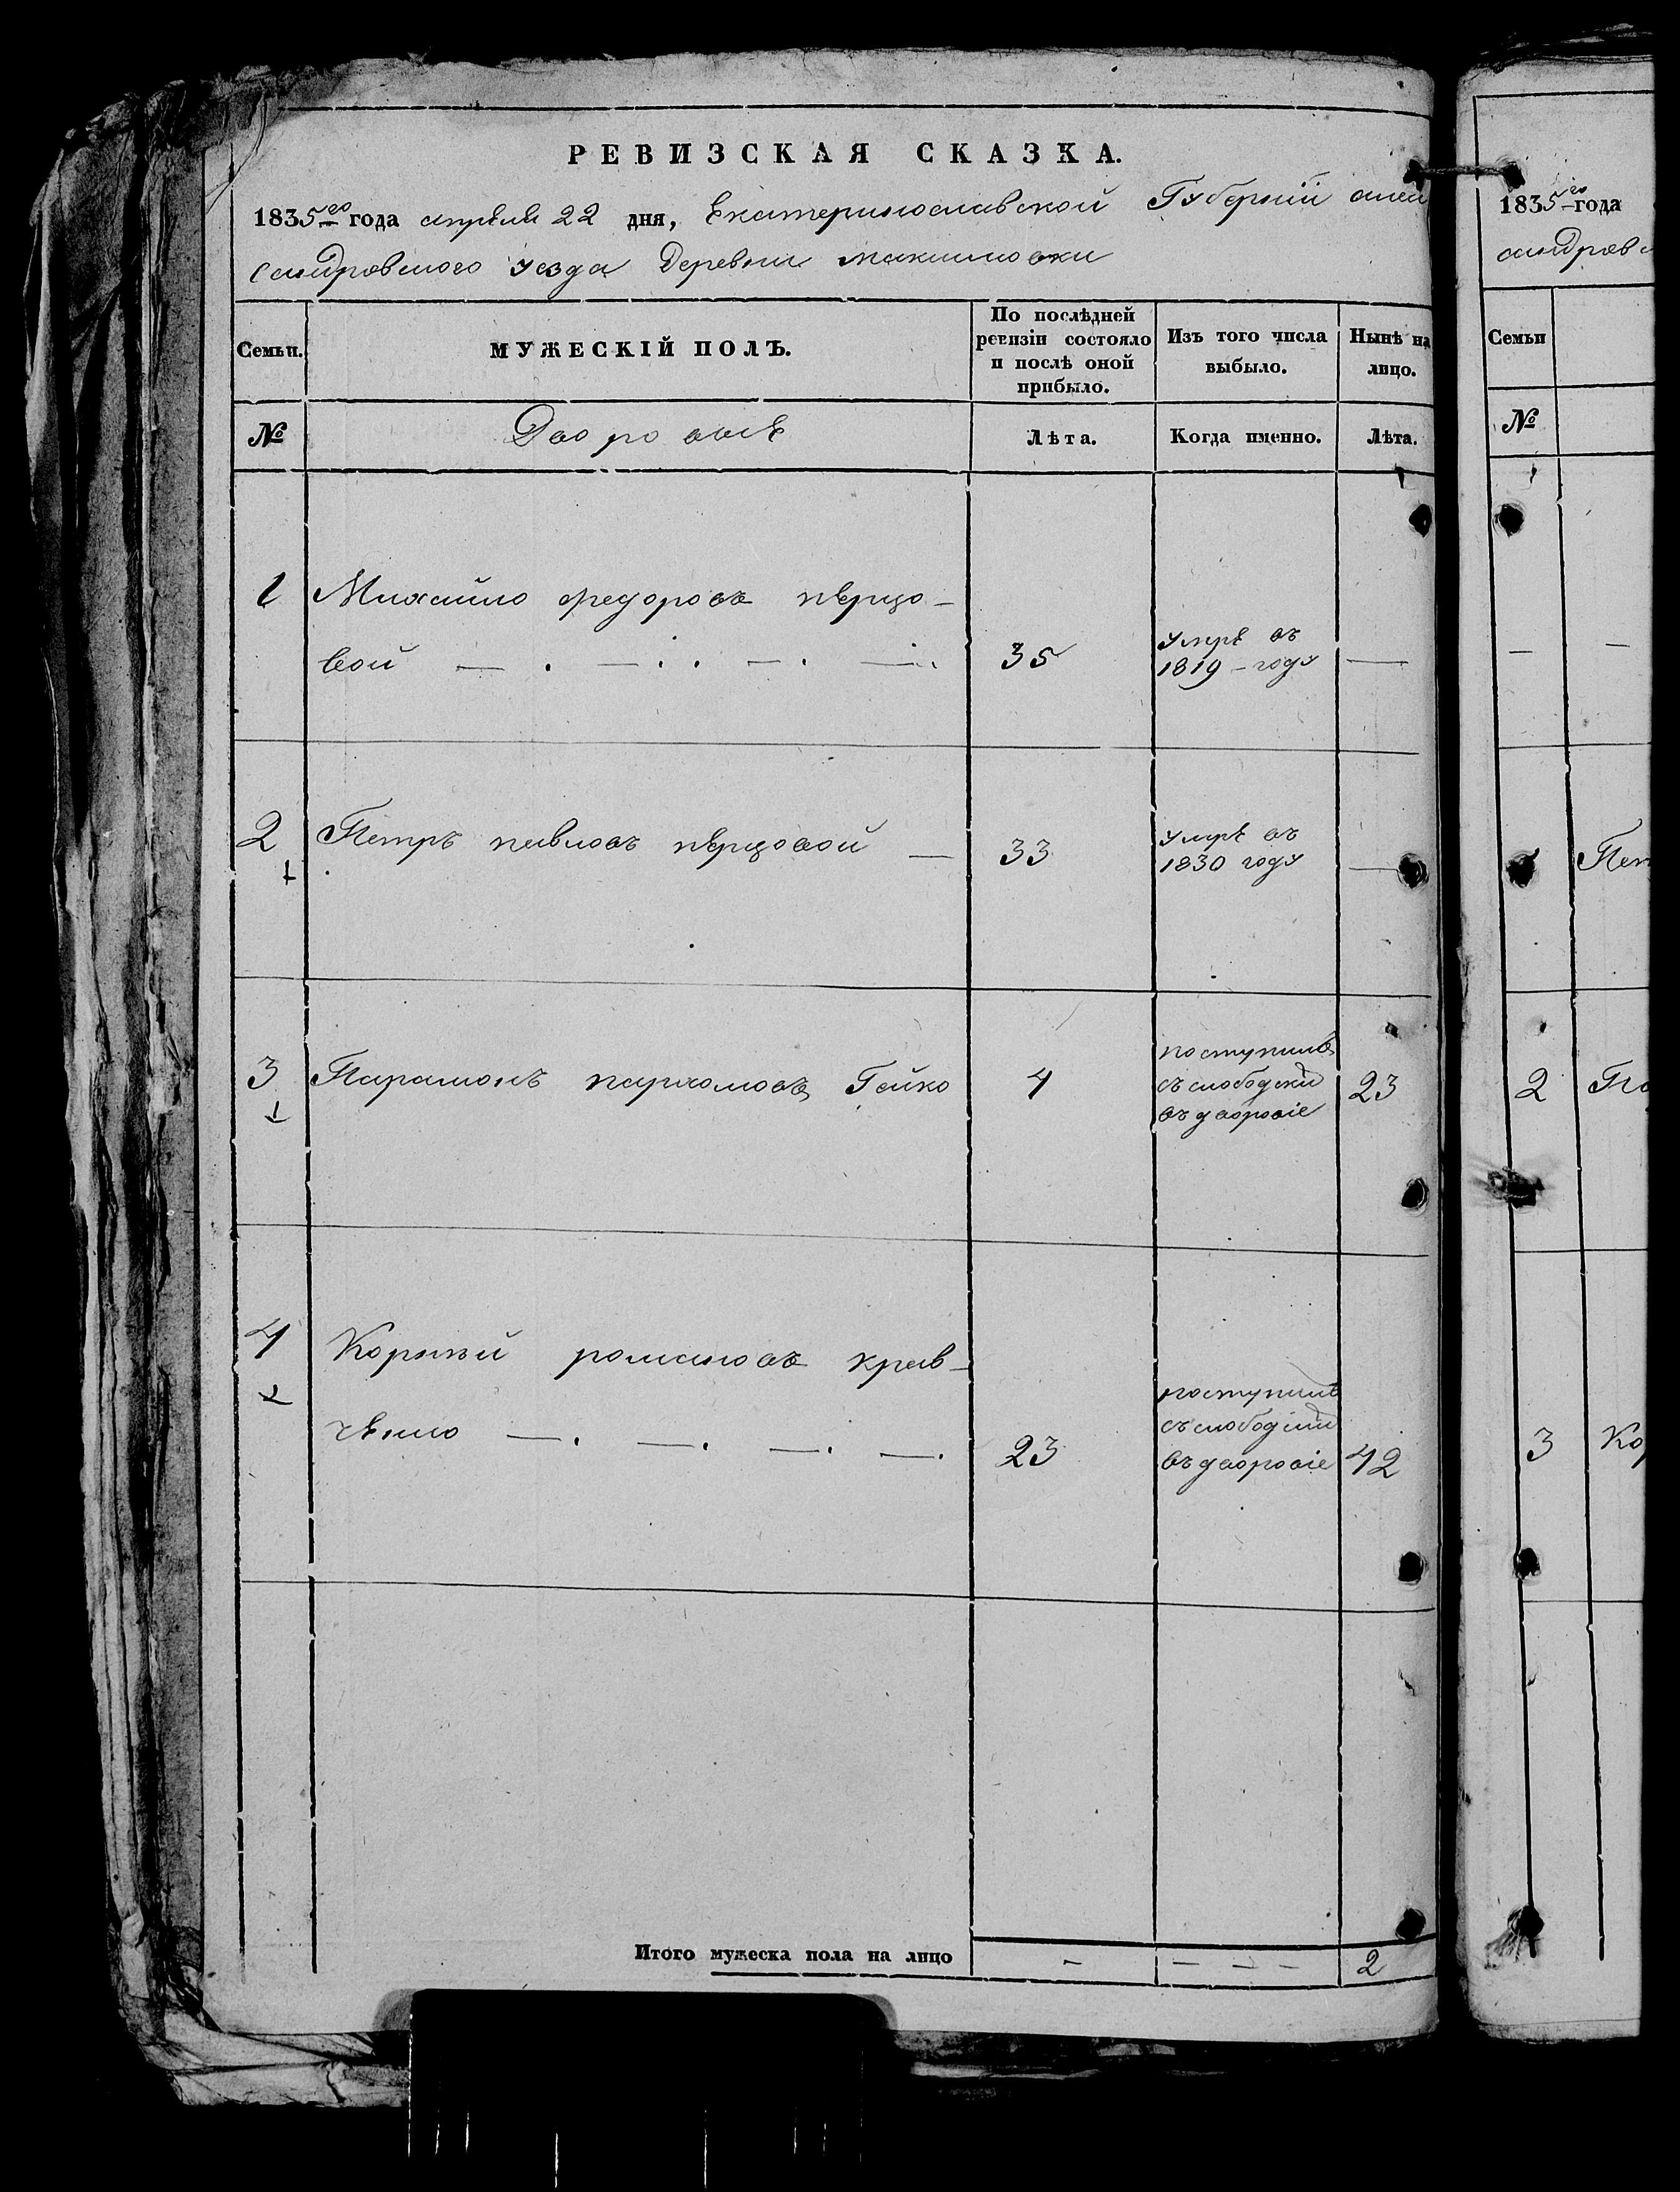 РЕВИЗСКАЯ СКАЗКА.
1835го года апреля 22 дня, Екатеринославской Губернiи алек
сандровского уезда Деревни максимовки
Семьи.
МУЖЕСКІЙ ПОЛЪ.
По послѣдней ревизіи состояло и послѣ оной прибыло.
Изъ того числа выбыло.
Нынѣ на лицо.
№
Дворовые
Лѣта.
Когда именно.
Лѣта.
1
Михайло федоровъ перцо-
вой
35
умре въ
1819 - году
2
Петръ павловъ перцовой
33
умре въ
1830 году
3
Парамонъ пархомовъ Гейко
4
поступилъ
въ дворовіе
23
4
Корней романовъ крав-
ченко
23
поступилъ
въ дворовіе
42
Итого мужеска пола на лицо
2
1835го года
сандровс
Семьи
№
Пет
2
Па
3
Ко